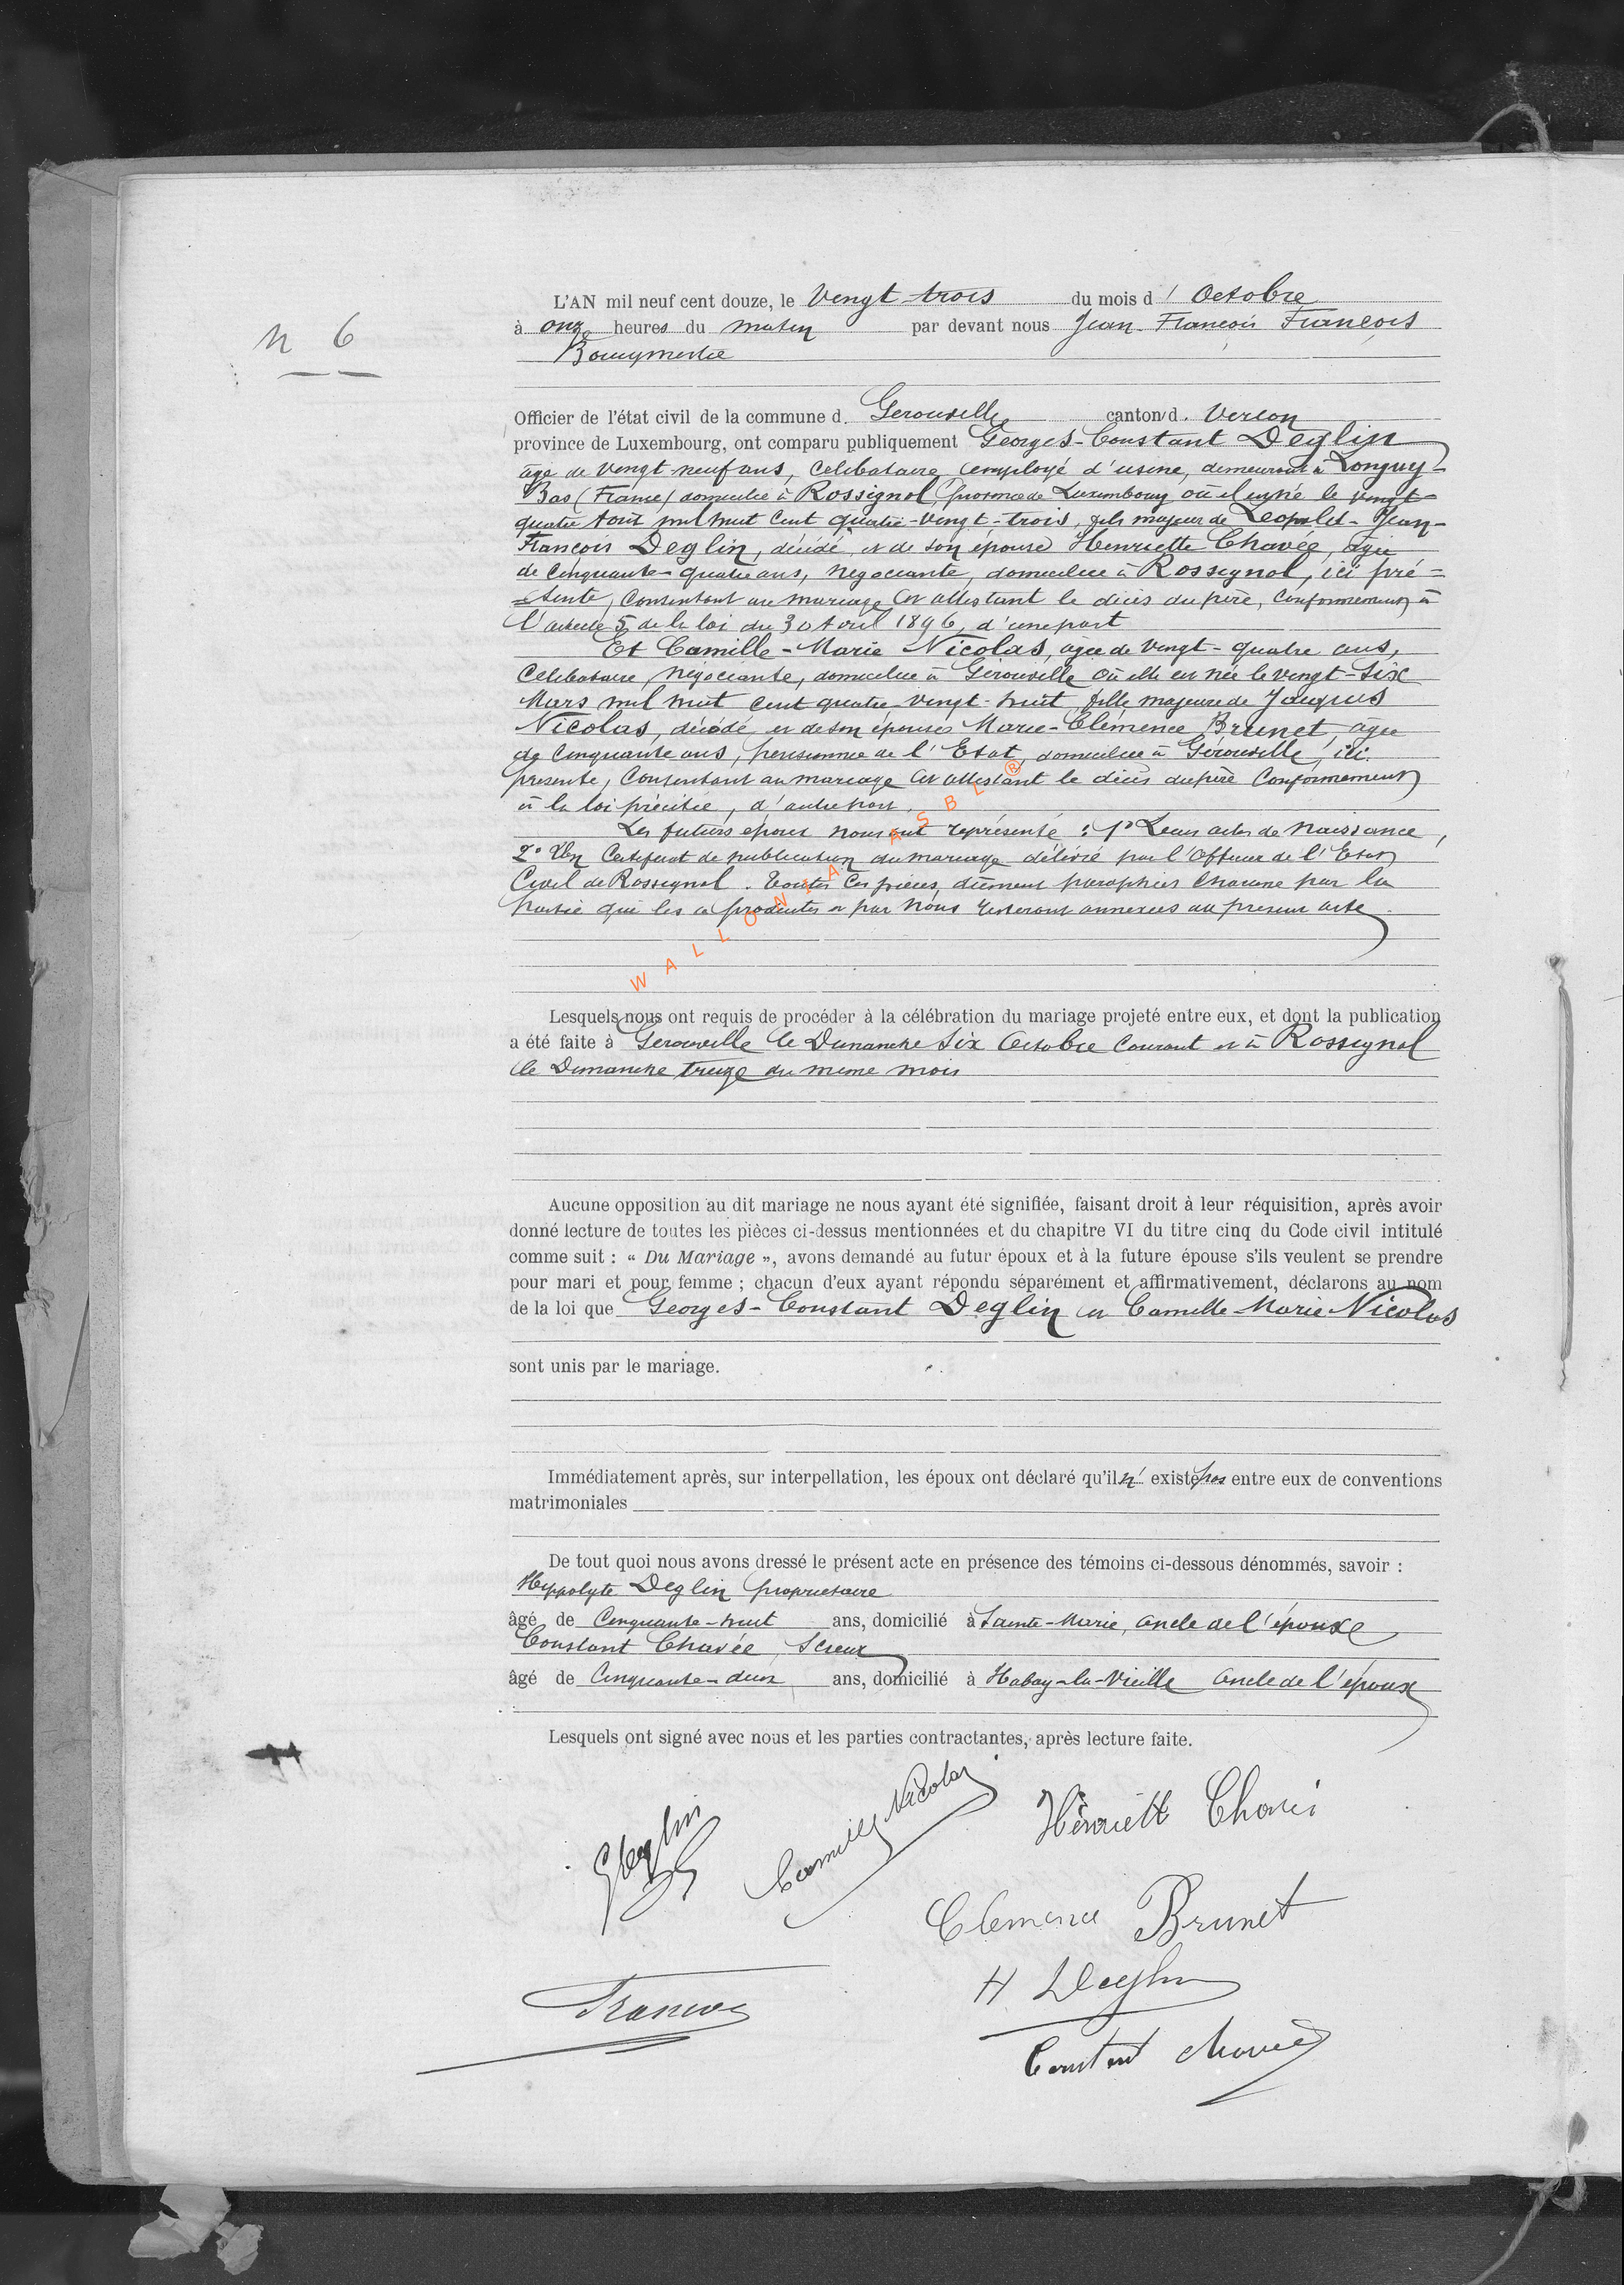 N 6
L'AN mil neuf cent douze, le Vingt-trois du mois d' Octobre
à onze heures du matin par devant nous Jean-François François
Bourgmestre
Officier de l'état civil de la commune d. Gerouville canton d. Virton
province de Luxembourg, ont comparu publiquement Georges-Constant Deglin
âgé de vingt-neuf ans, celibataire, employé d'usine, demeurant à Longwy-
Bas (France) domicilié à Rossignol, province de Luxembourg où il est né le vingt-
quatre Août mil huit cent quatre-vingt-trois, fils majeur de Leopold-Jean-
François Deglin, décédé, et de son épouse Henriette Chavée, âgée
de Cinquante-quatre ans, negociante, domiciliée à Rossignol, ici pré=
=sente, Consentant au mariage et attestant le décès du père, Conformement à
l'article 5 de la loi du 30 Avril 1896, d'une part
Et Camille-Marie Nicolas, agée de Vingt-quatre ans,
Celibataire, Négociante, domiciliée à Gérouville où elle est née le vingt-six
Mars mil huit cent quatre vingt-huit, fille majeure de Jacques
Nicolas, décédé, et de son épouse Marie-Clémence Brunet, agée
de Cinquante ans, pensionnée de l'Etat, domiciliée à Gérouville, ici
présente, Consentant au mariage et attestant le décès du père Conformement
à la loi précitée, d'autre part.
Les futurs époux nous ont représenté : 1° Leurs actes de Naissance,
2° Un Certificat de publication du mariage délivré par l'Officier de l'Etat
Civil de Rossignol. Toutes ces pièces, dûment paraphées chacune par la
partie qui les a produites et par nous resteront annexées au present acte.
WALLONIA ASBL ®
Lesquels nous ont requis de procéder à la célébration du mariage projeté entre eux, et dont la publication
a été faite à Gerouville le Dimanche Six Octobre Courant et à Rossignol
le Dimanche treize du meme mois
Aucune opposition au dit mariage ne nous ayant été signifiée, faisant droit à leur réquisition, après avoir
donné lecture de toutes les pièces ci-dessus mentionnées et du chapitre VI du titre cinq du Code civil intitulé
comme suit : « Du Mariage », avons demandé au futur époux et à la future épouse s'ils veulent se prendre
pour mari et pour femme ; chacun d'eux ayant répondu séparément et affirmativement, déclarons au nom
de la loi que Georges-Constant Deglin et Camille-Marie Nicolas
sont unis par le mariage.
Immédiatement après, sur interpellation, les époux ont déclaré qu'il n' existe pas entre eux de conventions
matrimoniales
De tout quoi nous avons dressé le présent acte en présence des témoins ci-dessous dénommés, savoir :
Hippolyte Deglin proprietaire
âgé de Cinquante-huit ans, domicilié à Sainte-Marie, oncle de l'époux
Constant Chavée, Scieur
âgé de Cinquante-deux ans, domicilié à Habay-la-Vieille oncle de l'époux
Lesquels ont signé avec nous et les parties contractantes, après lecture faite.
GDeglin
Camille Nicolas
Henriette Chavée
Clemence Brunet
H Deglin
François
Constant Chavée